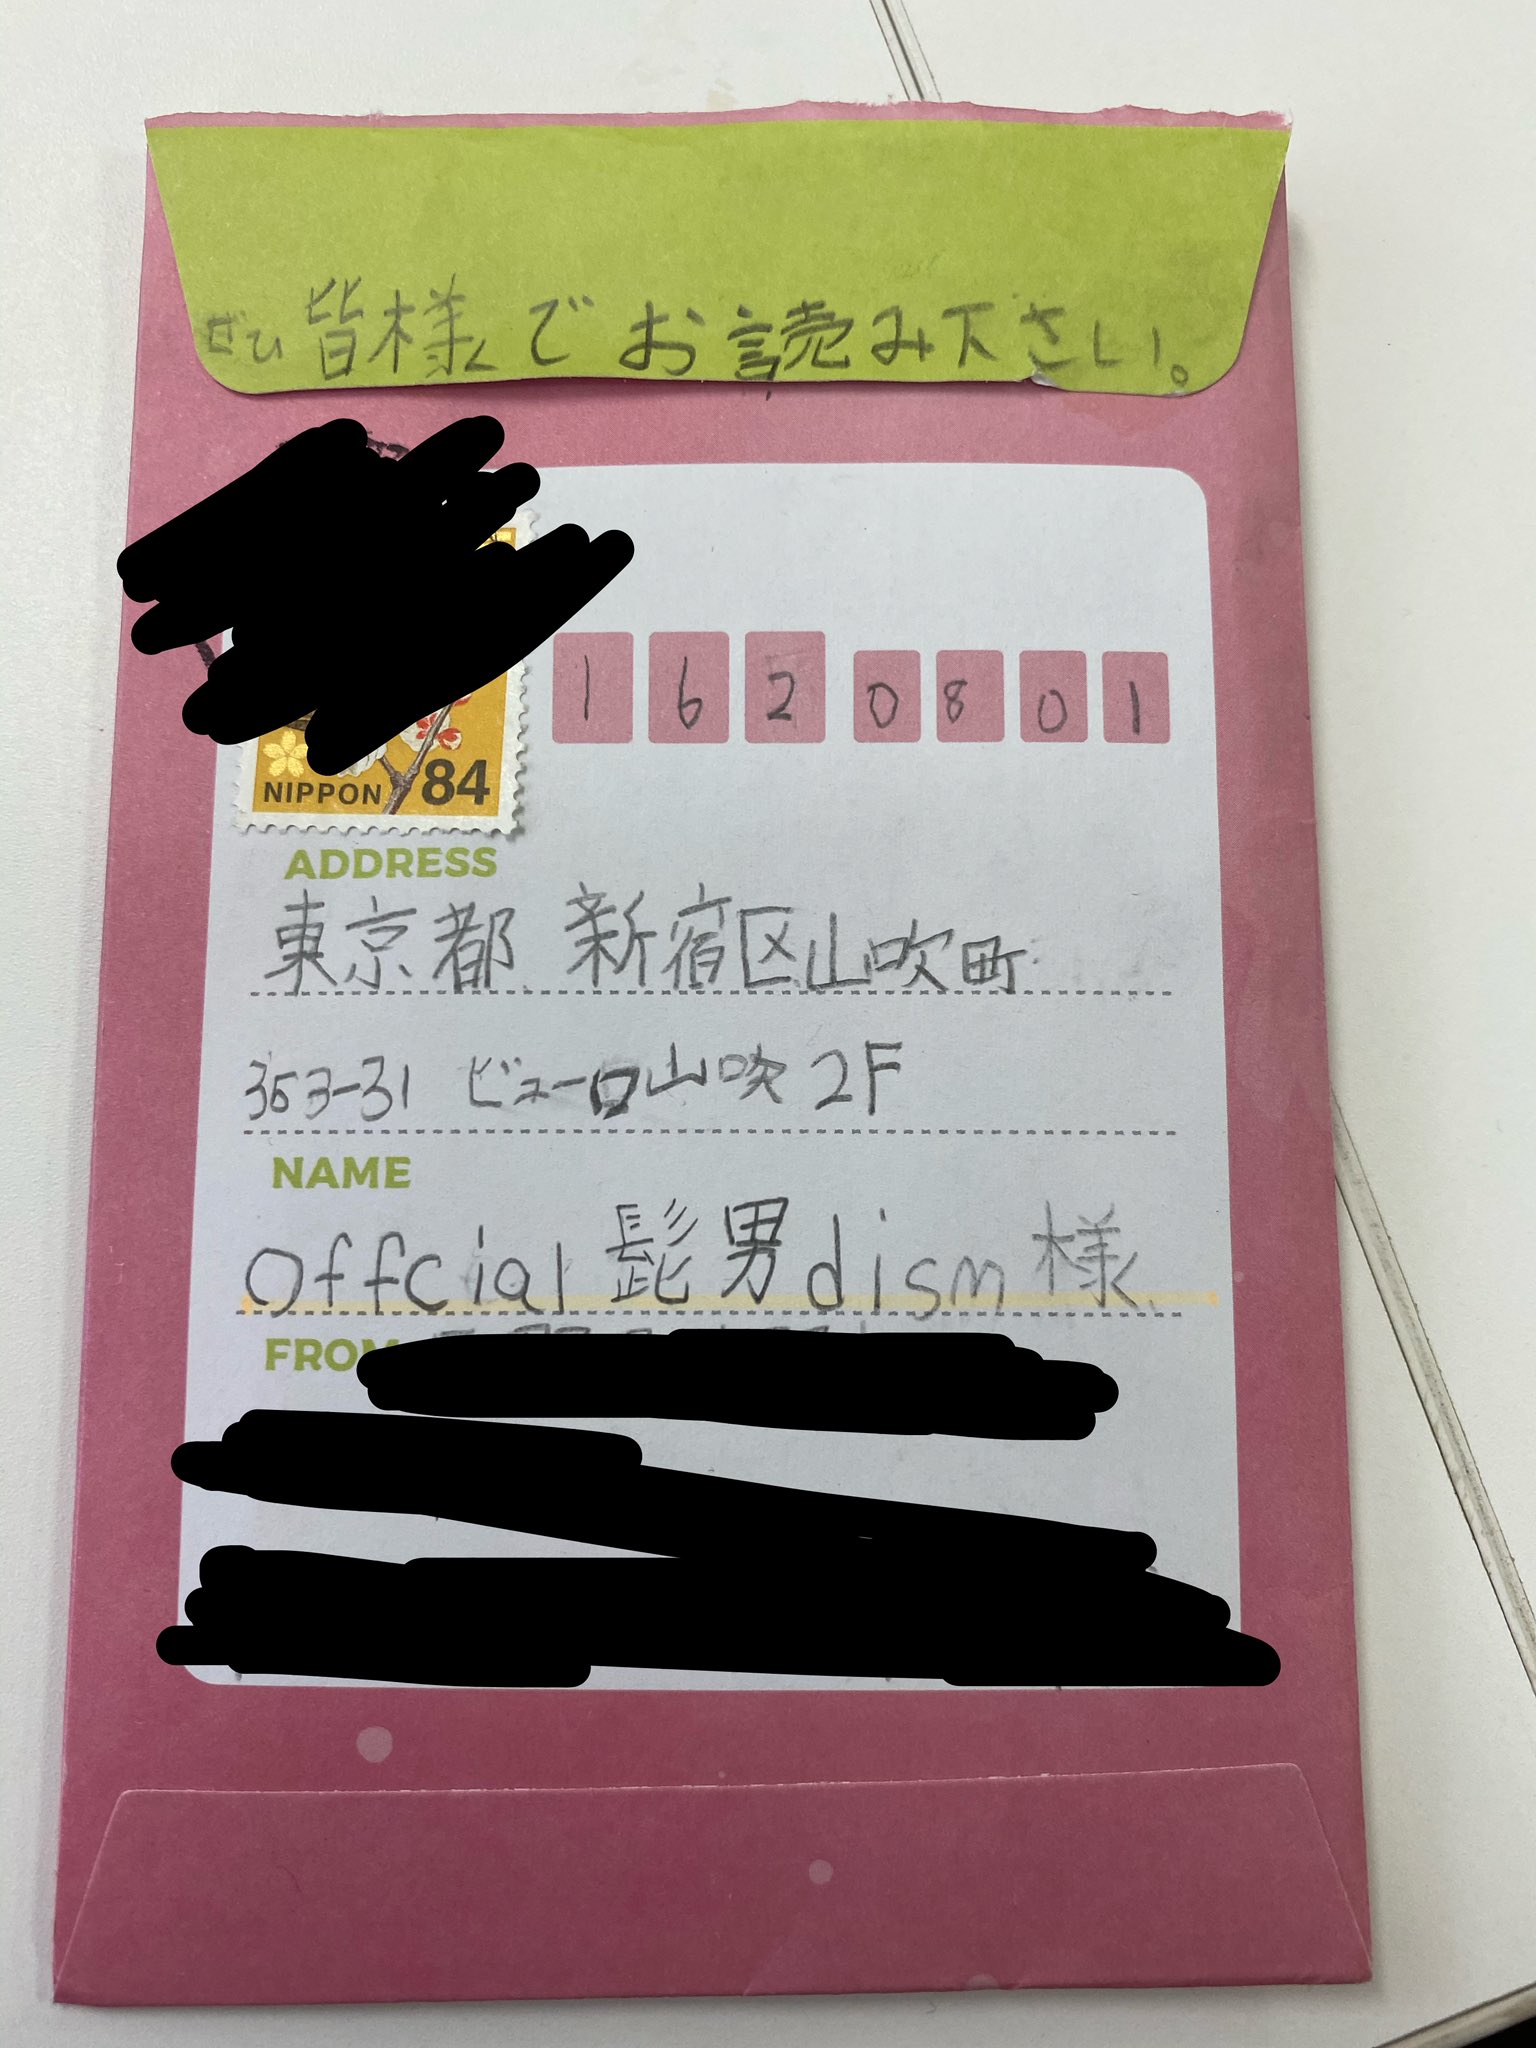 ぜひ皆様でお読み下さい。
1620801
NIPPON 84
ADDRESS
東京都 新宿区山吹町
353-31 ビューロ山吹 2F
NAME
Offcial髭男dism 様
FROM